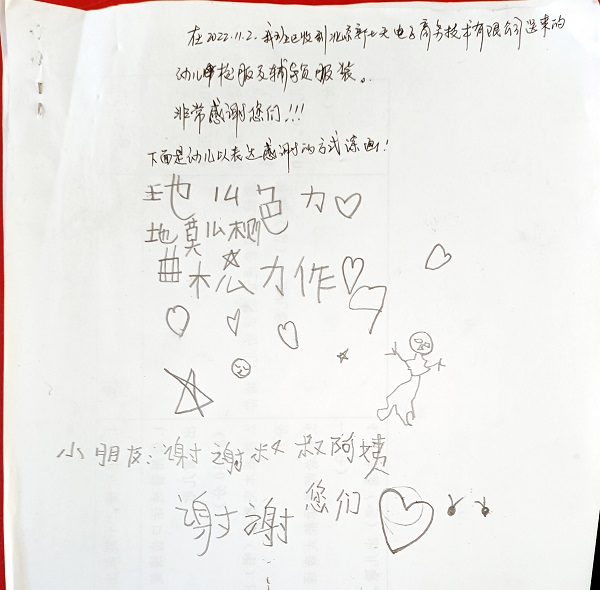 在2022.11.2.我班已收到北京新七天电子商务技术有限公司送来的
幼儿校服及辅导员服装。
非常感谢您们!!!
下面是幼儿以表达感谢的方式涂画!
地么色力
地莫么
木公力作
小朋友:谢谢叔叔阿姨
谢谢您们